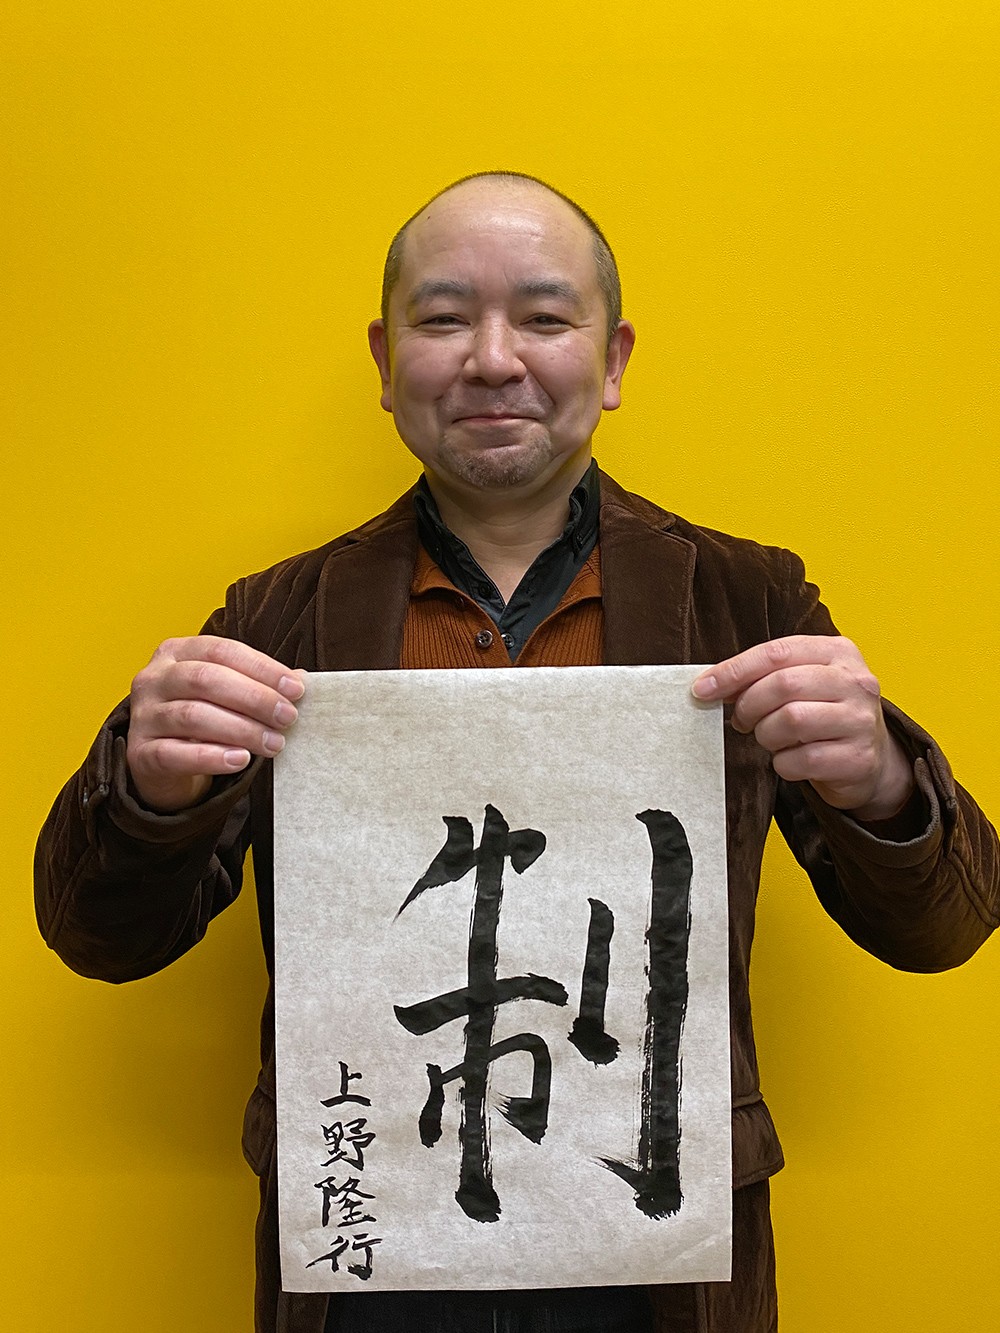 制
上野隆行